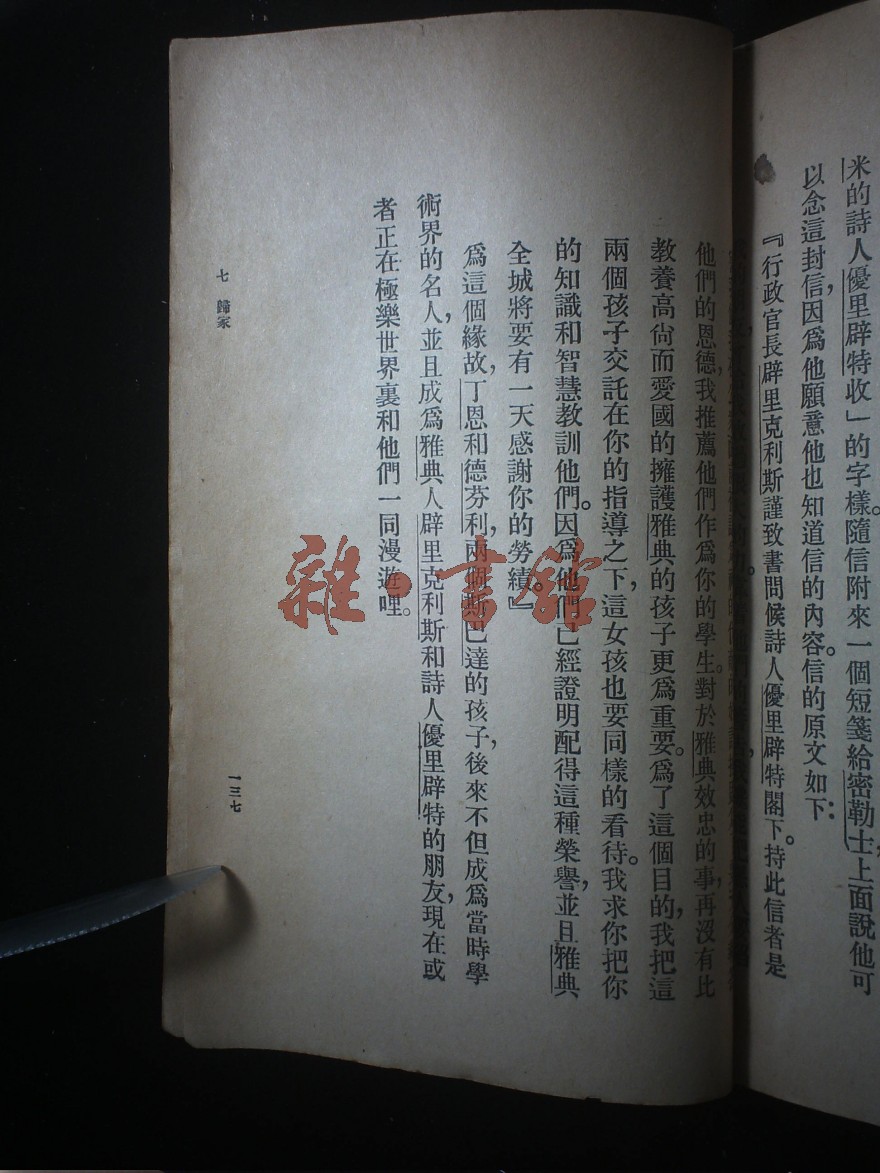 米的詩人優里辟特收」的字樣。隨信附來一個短箋給密勒士，上面說他可
以念這封信，因爲他願意他也知道信的內容。信的原文如下：
『行政官長辟里克利斯謹致書問候詩人優里辟特閣下。持此信者是
他們的恩德，我推薦他們作爲你的學生。對於雅典效忠的事，再沒有比
教養高尙而愛國的擁護雅典的孩子更爲重要。爲了這個目的，我把這
兩個孩子交託在你的指導之下，這女孩也要同樣的看待。我求你把你
的知識和智慧教訓他們。因爲他們已經證明配得這種榮譽，並且雅典
全城將要有一天感謝你的勞績。』
爲這個緣故，丁恩和德芬利，兩個斯巴達的孩子，後來不但成爲當時學
術界的名人，並且成爲雅典人辟里克利斯和詩人優里辟特的朋友，現在或
者正在極樂世界裏和他們一同漫遊哩。
七 歸家
一三七
雜·書館